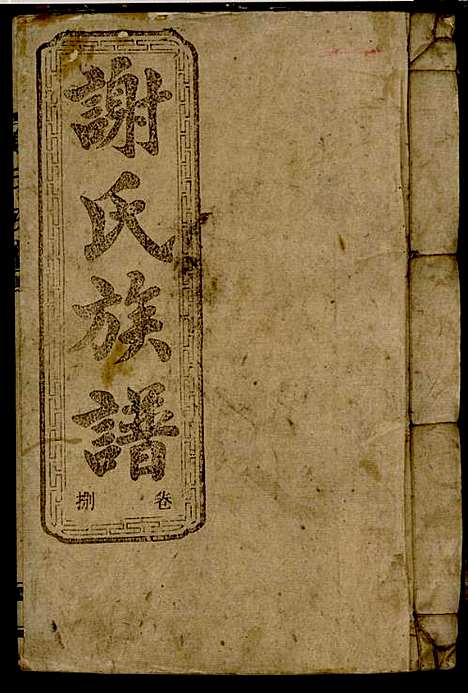 謝氏族譜
卷捌